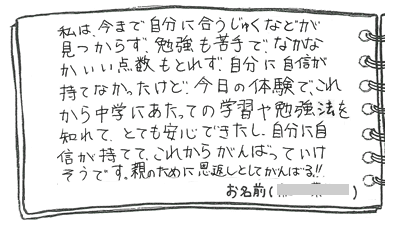 私は、今まで自分に合うじゅくなどが
見つからず、勉強も苦手でなかな
かいい点数もとれず自分に自信が
持てなかったけど、今日の体験で、これ
から中学にあたっての学習や勉強法を
知れて、とても安心できたし、自分に自
信が持てて、これからがんばっていけ
そうです。親のために恩返しとしてがんばる!!
お名前( )